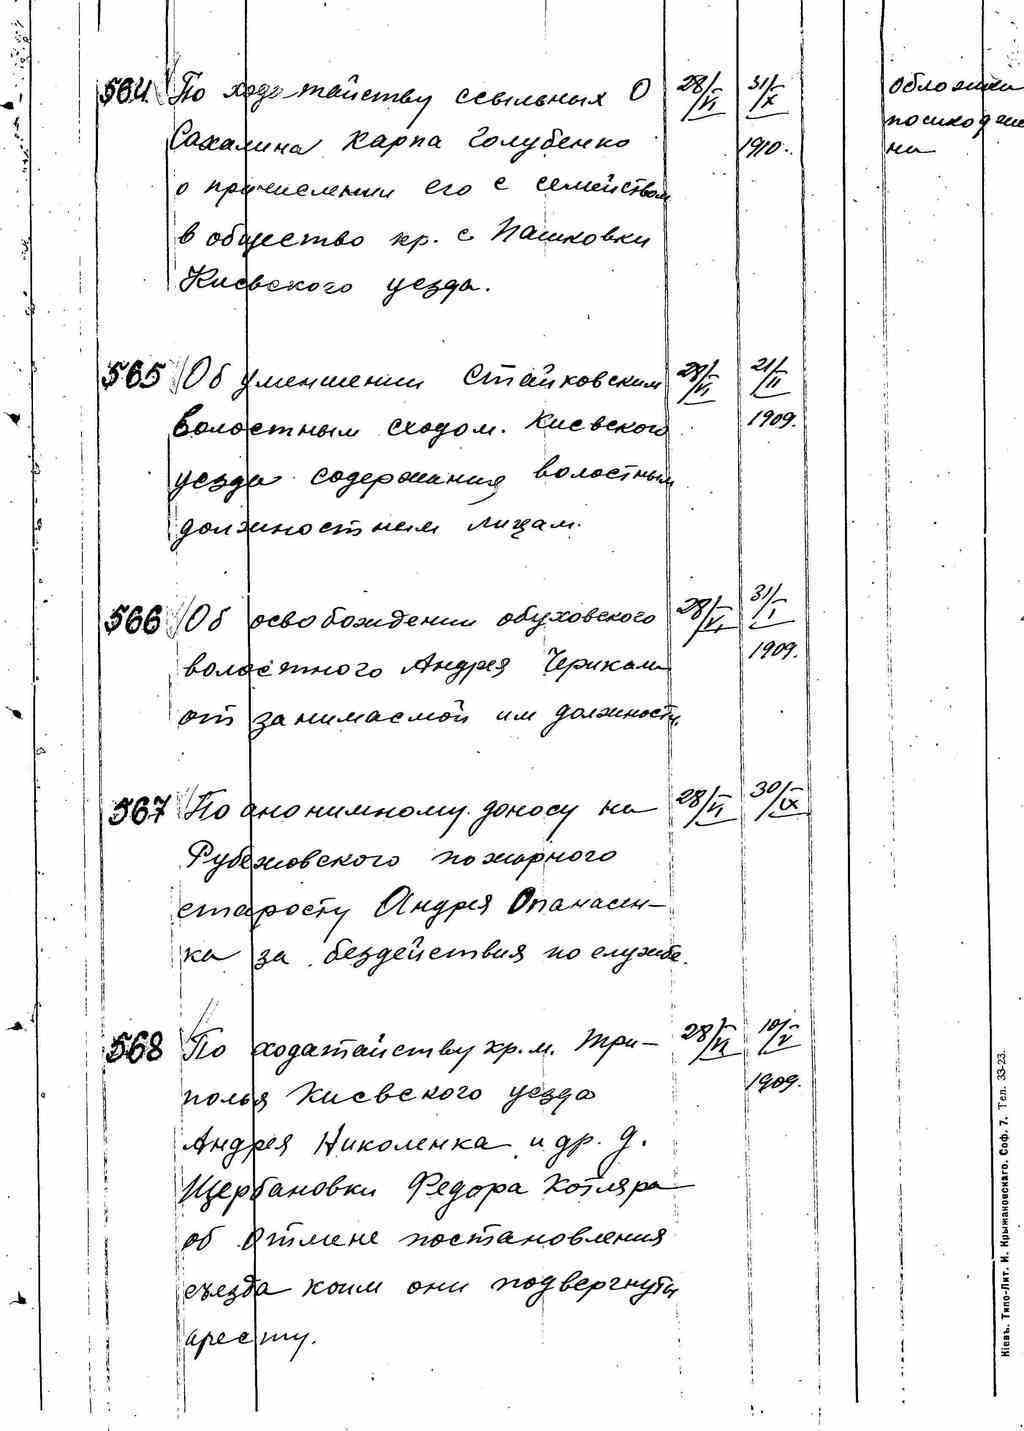 564 По ходатайству ссыльных О 28/VI 31/X Обложка
Сахалина Карпа Голубенко 1910.
о причислении его с семейством
в общество кр. с Пашковки
Киевского уезда.
565 Об уменшении Стайковским 28/VI 21/II
волостным сходом. Киевского 1909.
уезда содержания волостным
должностным лицам.
566 Об освобождении обуховского 28/VI 31/I
волостного Андрея 1909.
от занимаемой им должности.
567 По анонимному доносу на 28/VI 30/IX
Рубежовского пожарного
старосту Андрея Опанасен-
ка за бездействия по службе.
568 По ходатайству кр. м. Три- 28/VI 10/V
полья Киевского уезда 1909.
Андрея Николенка и др. д.
Щербановки Федора Котляра
об отмене постановления
съезда коим они подвергнуты
аресту.
Кіевъ. Типо-Лит. И. Крыжановскаго. Соф. 7. Тел. 33-23.